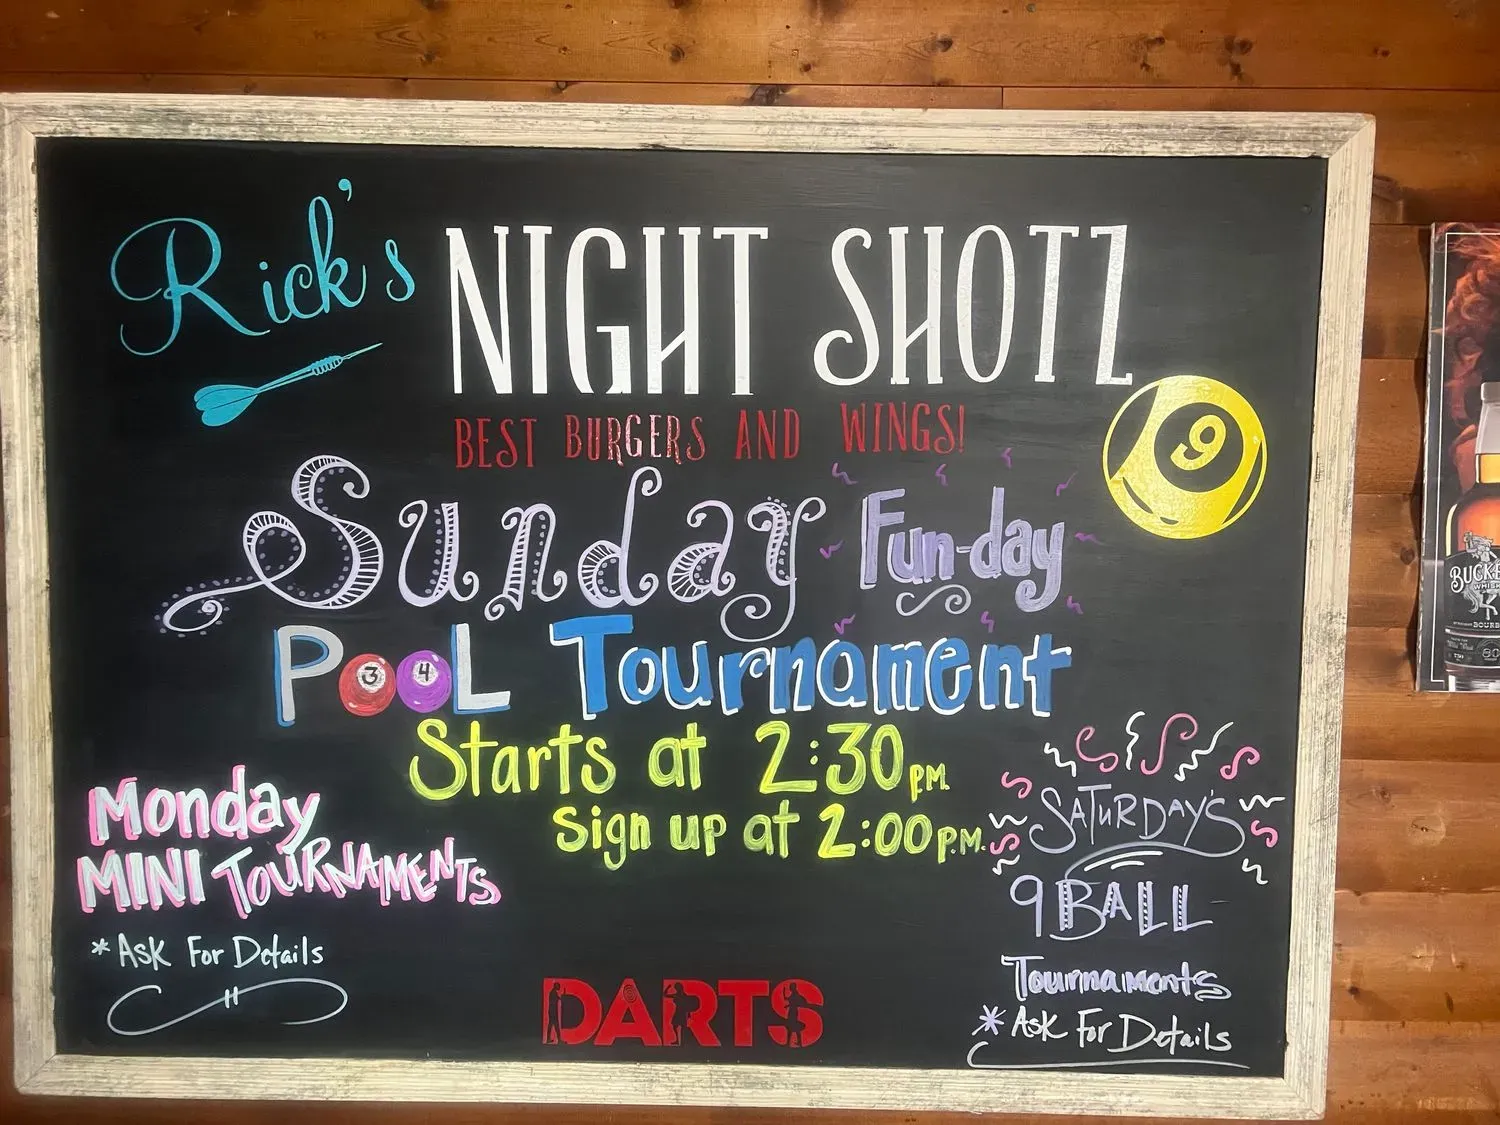 Rick's
NIGHT SHOTZ
BEST BURGERS AND WINGS!
9
Sunday Fun-day
POOL Tournament
3 4
Starts at 2:30 P.M.
Sign up at 2:00 P.M.
Monday
MINI TOURNAMENTS
*Ask For Details
SATURDAY'S
9 BALL
Tournaments
*Ask For Details
DARTS
BUCK
WHIS
BOURB
80